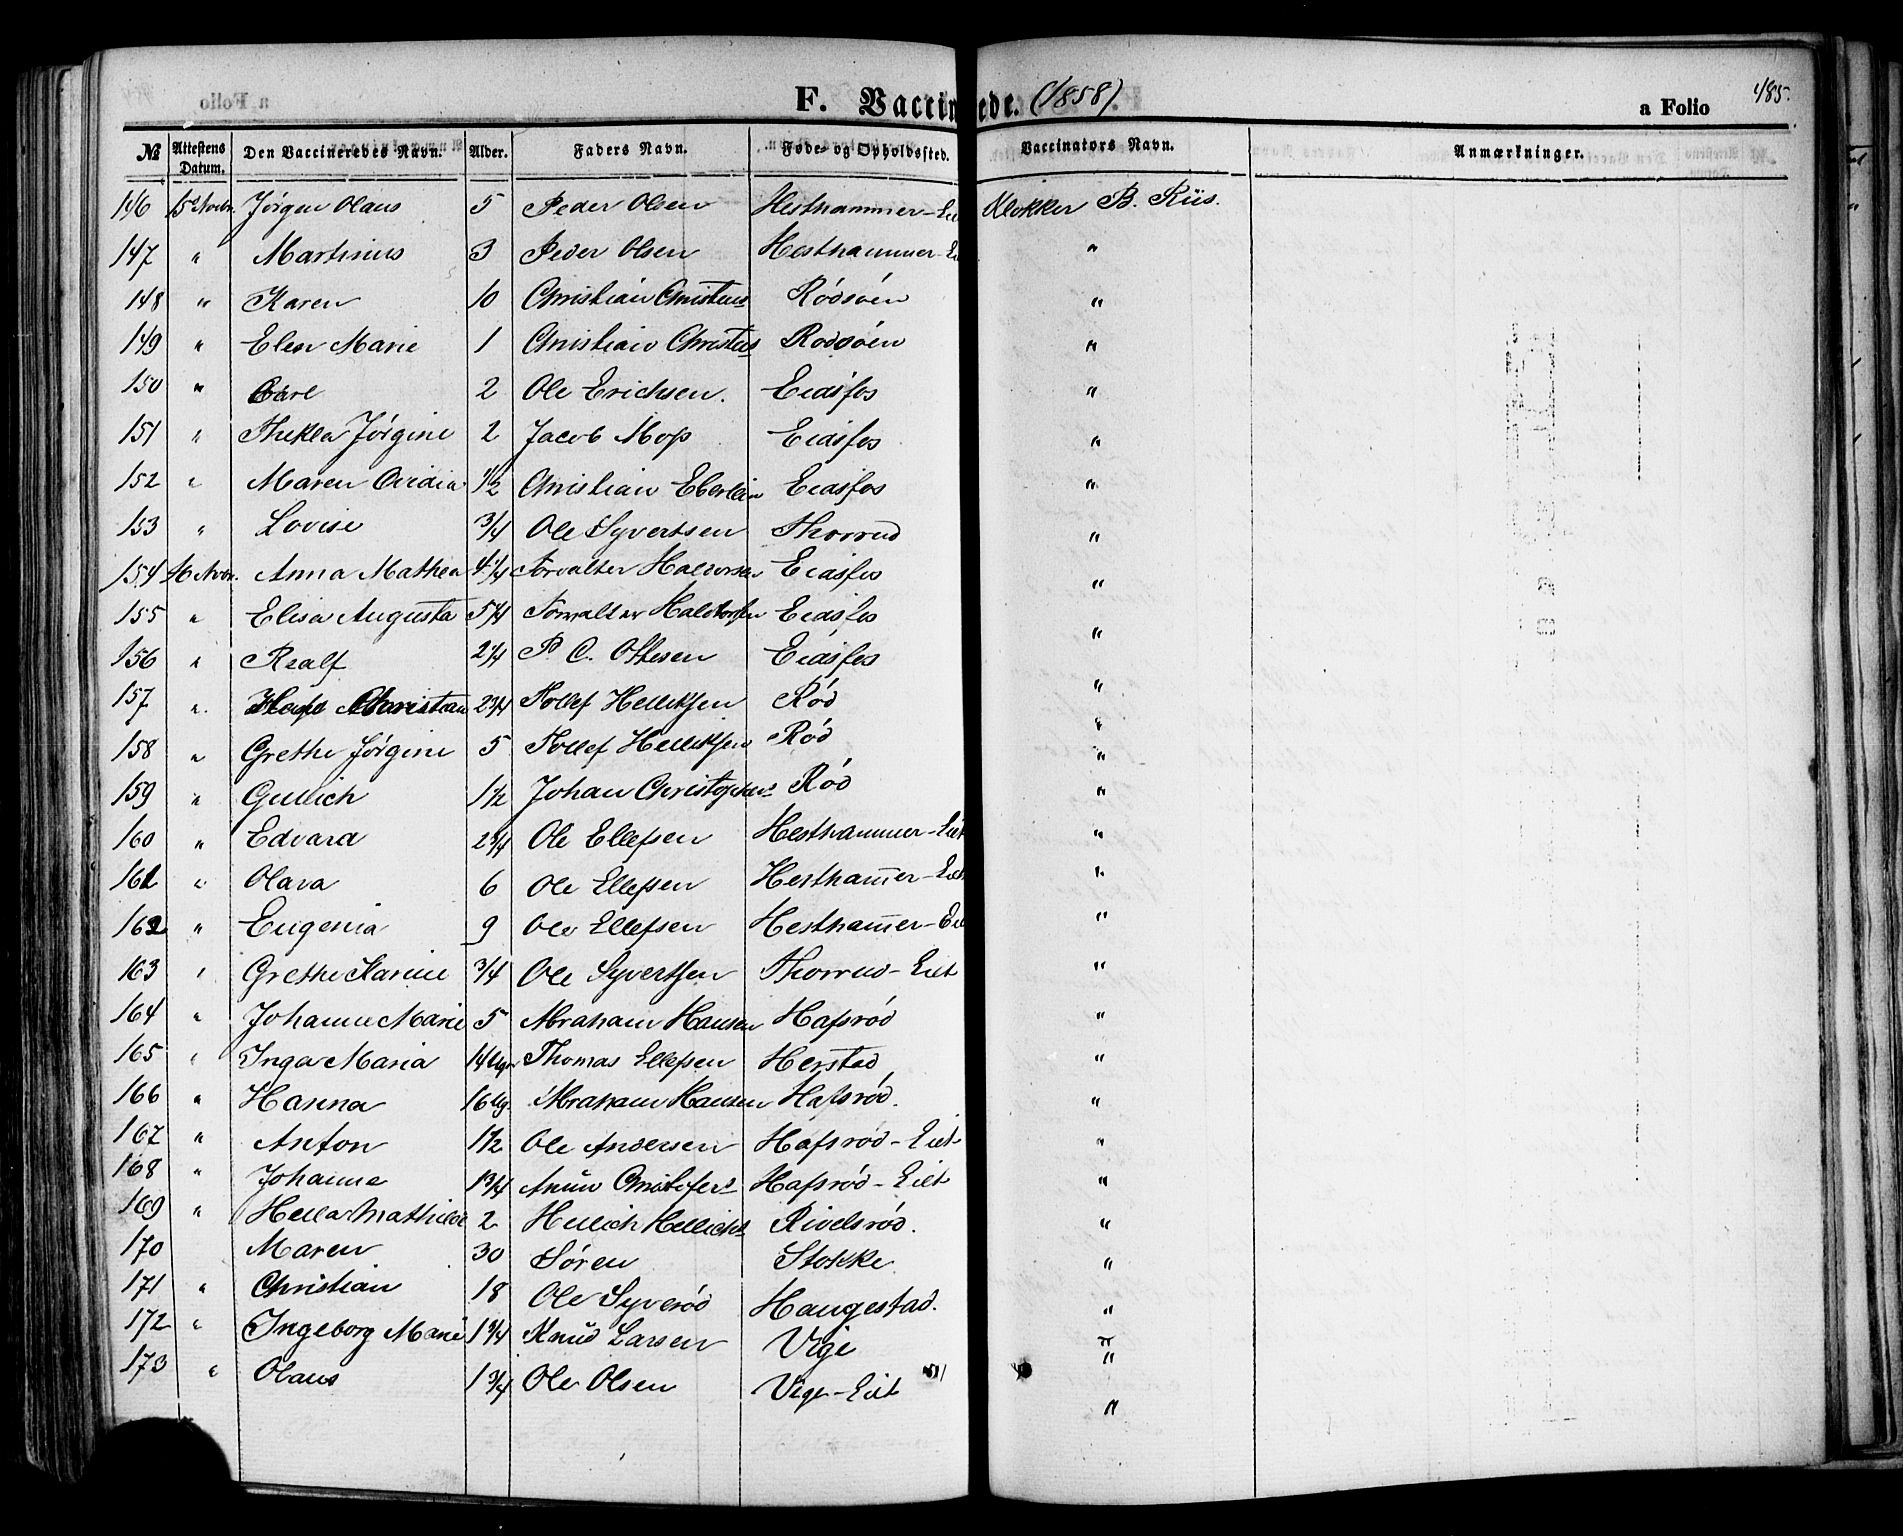 F. Vaccinerede. (1858)
a Folio 485.
№ Attestens Datum. Den Vaccineredes Navn. Alder. Faders Navn. Føde- og Opholdssted. Vaccinators Navn. Anmærkninger.
146 15 Novbr. Jørgen Olaus 5 Peder Olsen Hesthammer-Eiet Klokker B. Riis.
147 " Martinius 3 Peder Olsen Hesthammer-Ei "
148 " Karen 10 Christian Christens Rødsøen "
149 " Elen Marie 1 Christian Christens Rødsøen "
150 " Carl 2 Ole Erichsen. Eidsfos "
151 " Thekla Jørgine 2 Jacob Moss Eidsfos "
152 " Maren Ovidia 1½ Christian Eberlein Eidsfos "
153 " Lovise ¾ Ole Syvertsen Thorrud "
154 16 Novbr. Anna Mathea 4¼ Forvalter Haldorsen Eidsfos "
155 " Elisa Augusta 5¼ Forvalter Haldorsen Eidsfos "
156 " Realf 2¼ P. C. Ottesen Eidsfos "
157 " Christian 2¾ Tollef Helliksen Rød "
158 " Grethe Jørgine 5 Tollef Helliksen Rød "
159 " Gullich 1½ Johan Christophers Rød "
160 " Edvard 2¾ Ole Ellefsen Hesthammer-Eiet "
161 " Olava 6 Ole Ellefsen Hesthammer-Eiet "
162 " Eugenia 9 Ole Ellefsen Hesthammer-Eie "
163 " Grethe Karine ¾ Ole Syvertsen Thorrud-Eiet "
164 " Johanne Marie 5 Abraham Hansen Hafsrød "
165 " Inga Maria 14 Ugr Thomas Ellefsen Herstad "
166 " Hanna 16 Ug. Abraham Hansen Hafsrød. "
167 " Anton 1½ Ole Andersen Hafsrød-Eiet "
168 " Johanne 1¾ Anun Christofers Hafsrød-Eiet "
169 " Hella Mathilde 2 Hellich Hellichs Rivelsrød. "
170 Maren 30 Søren Stokke "
171 " Christian 18 Ole Syverød Haugestad. "
172 " Ingeborg Marie 1¾ Knud Larsen Vige "
173 " Olaus 1¾ Ole Olsen Vige-Eiet "